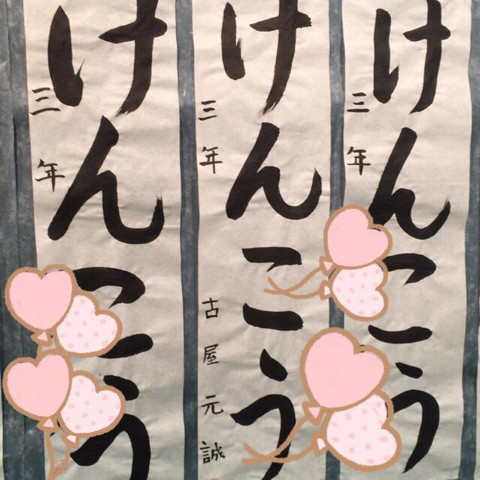 けんこう
三年
けんこう
三年 古屋元誠
けんこう
三年